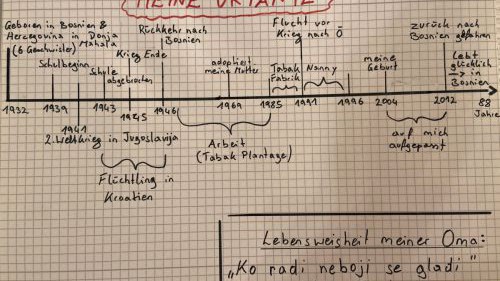 MEINE URTANTE
Geboren in Bosnien &
Hercegovina in Donja
(6 Geschwister) Mahala
Schulbeginn
Schule
abgebrochen
Krieg Ende
Rückkehr nach
Bosnien
adoptiert
meine Mutter
Flucht vor
Krieg nach Ö
Tabak
Fabrik
Nanny
meine
Geburt
zurück nach
Bosnien gefahren
Lebt
glücklich
→ in
Bosnien
1932
1939
1941
1943
1945
1946
1969
1985
1991
1996
2004
2012
88
Jahre
2. Weltkrieg in Jugoslavija
Flüchtling in
Kroatien
Arbeit
(Tabak Plantage)
auf mich
aufgepasst
Lebensweisheit meiner Oma:
"Ko radi neboji se gladi"